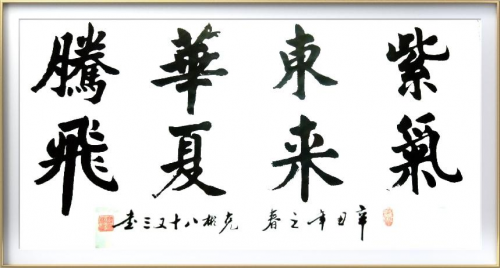 紫氣
東来
華夏
騰飛
辛丑年之春 克彬八十又三書